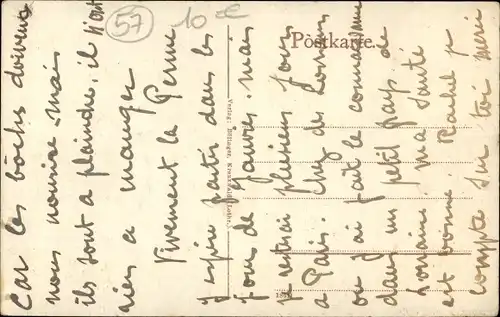 57
10 €
Postkarte.
Car les bôches doivent
nous nourrir mais
ils sont a plaindre, il n'ont
rien a manger
Vivement la Perme
J espère partir dans les
jour de Janvier. mais
je resterai plusieurs jours
a Paris. Chez des Lorrains
ou j ai fait le connaissance
dans un petit pays de
Lorraine ma Santé
est bonne. Rachel je
compte sur toi merci